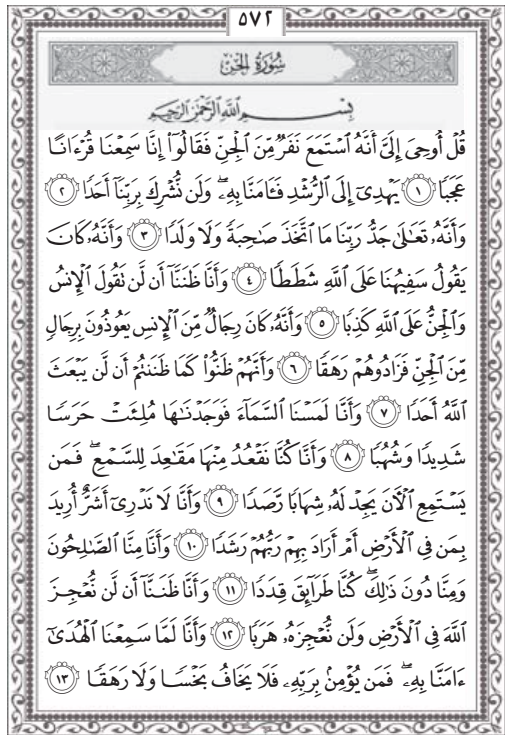 ٥٧٢
سُورَةُ الجِنّ
بِسْمِ اللَّهِ الرَّحْمَٰنِ الرَّحِيمِ
قُلْ أُوحِىَ إِلَىَّ أَنَّهُ ٱسْتَمَعَ نَفَرٌ مِّنَ ٱلْجِنِّ فَقَالُوٓا۟ إِنَّا سَمِعْنَا قُرْءَانًا
عَجَبًا ١ يَهْدِىٓ إِلَى ٱلرُّشْدِ فَـَٔامَنَّا بِهِۦ ۖ وَلَن نُّشْرِكَ بِرَبِّنَآ أَحَدًا ٢
وَأَنَّهُۥ تَعَٰلَىٰ جَدُّ رَبِّنَا مَا ٱتَّخَذَ صَٰحِبَةً وَلَا وَلَدًا ٣ وَأَنَّهُۥ كَانَ
يَقُولُ سَفِيهُنَا عَلَى ٱللَّهِ شَطَطًا ٤ وَأَنَّا ظَنَنَّآ أَن لَّن تَقُولَ ٱلْإِنسُ
وَٱلْجِنُّ عَلَى ٱللَّهِ كَذِبًا ٥ وَأَنَّهُۥ كَانَ رِجَالٌ مِّنَ ٱلْإِنسِ يَعُوذُونَ بِرِجَالٍ
مِّنَ ٱلْجِنِّ فَزَادُوهُمْ رَهَقًا ٦ وَأَنَّهُمْ ظَنُّوا۟ كَمَا ظَنَنتُمْ أَن لَّن يَبْعَثَ
ٱللَّهُ أَحَدًا ٧ وَأَنَّا لَمَسْنَا ٱلسَّمَآءَ فَوَجَدْنَٰهَا مُلِئَتْ حَرَسًا
شَدِيدًا وَشُهُبًا ٨ وَأَنَّا كُنَّا نَقْعُدُ مِنْهَا مَقَٰعِدَ لِلسَّمْعِ ۖ فَمَن
يَسْتَمِعِ ٱلْـَٔانَ يَجِدْ لَهُۥ شِهَابًا رَّصَدًا ٩ وَأَنَّا لَا نَدْرِىٓ أَشَرٌّ أُرِيدَ
بِمَن فِى ٱلْأَرْضِ أَمْ أَرَادَ بِهِمْ رَبُّهُمْ رَشَدًا ١٠ وَأَنَّا مِنَّا ٱلصَّٰلِحُونَ
وَمِنَّا دُونَ ذَٰلِكَ ۖ كُنَّا طَرَآئِقَ قِدَدًا ١١ وَأَنَّا ظَنَنَّآ أَن لَّن نُّعْجِزَ
ٱللَّهَ فِى ٱلْأَرْضِ وَلَن نُّعْجِزَهُۥ هَرَبًا ١٢ وَأَنَّا لَمَّا سَمِعْنَا ٱلْهُدَىٰٓ
ءَامَنَّا بِهِۦ ۖ فَمَن يُؤْمِنۢ بِرَبِّهِۦ فَلَا يَخَافُ بَخْسًا وَلَا رَهَقًا ١٣